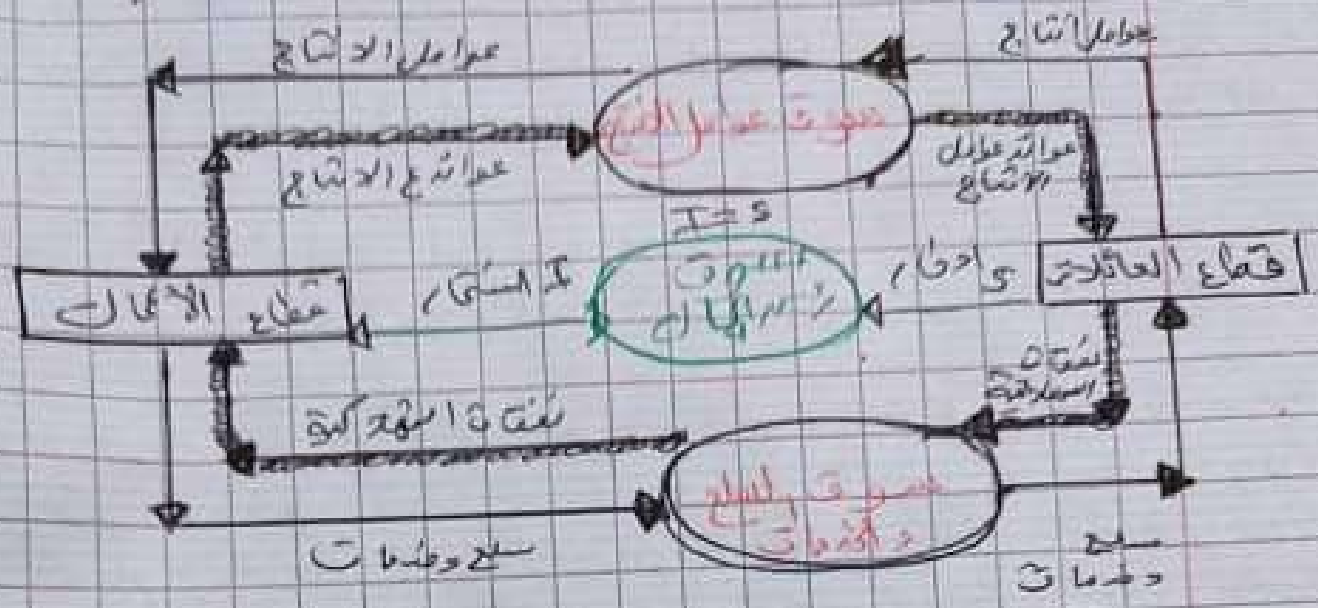 عوامل الانتاج
عوامل انتاج
سوق عوامل الانتاج
عوائد ع الانتاج
عوائد عوامل
الانتاج
I = S
سوق
رأس المال
I استثمار
S ادخار
قطاع العائلات
قطاع الأعمال
نفقات
استهلاكية
نفقات استهلاكية
سوق السلع
والخدمات
سلع وخدمات
سلع
وخدمات